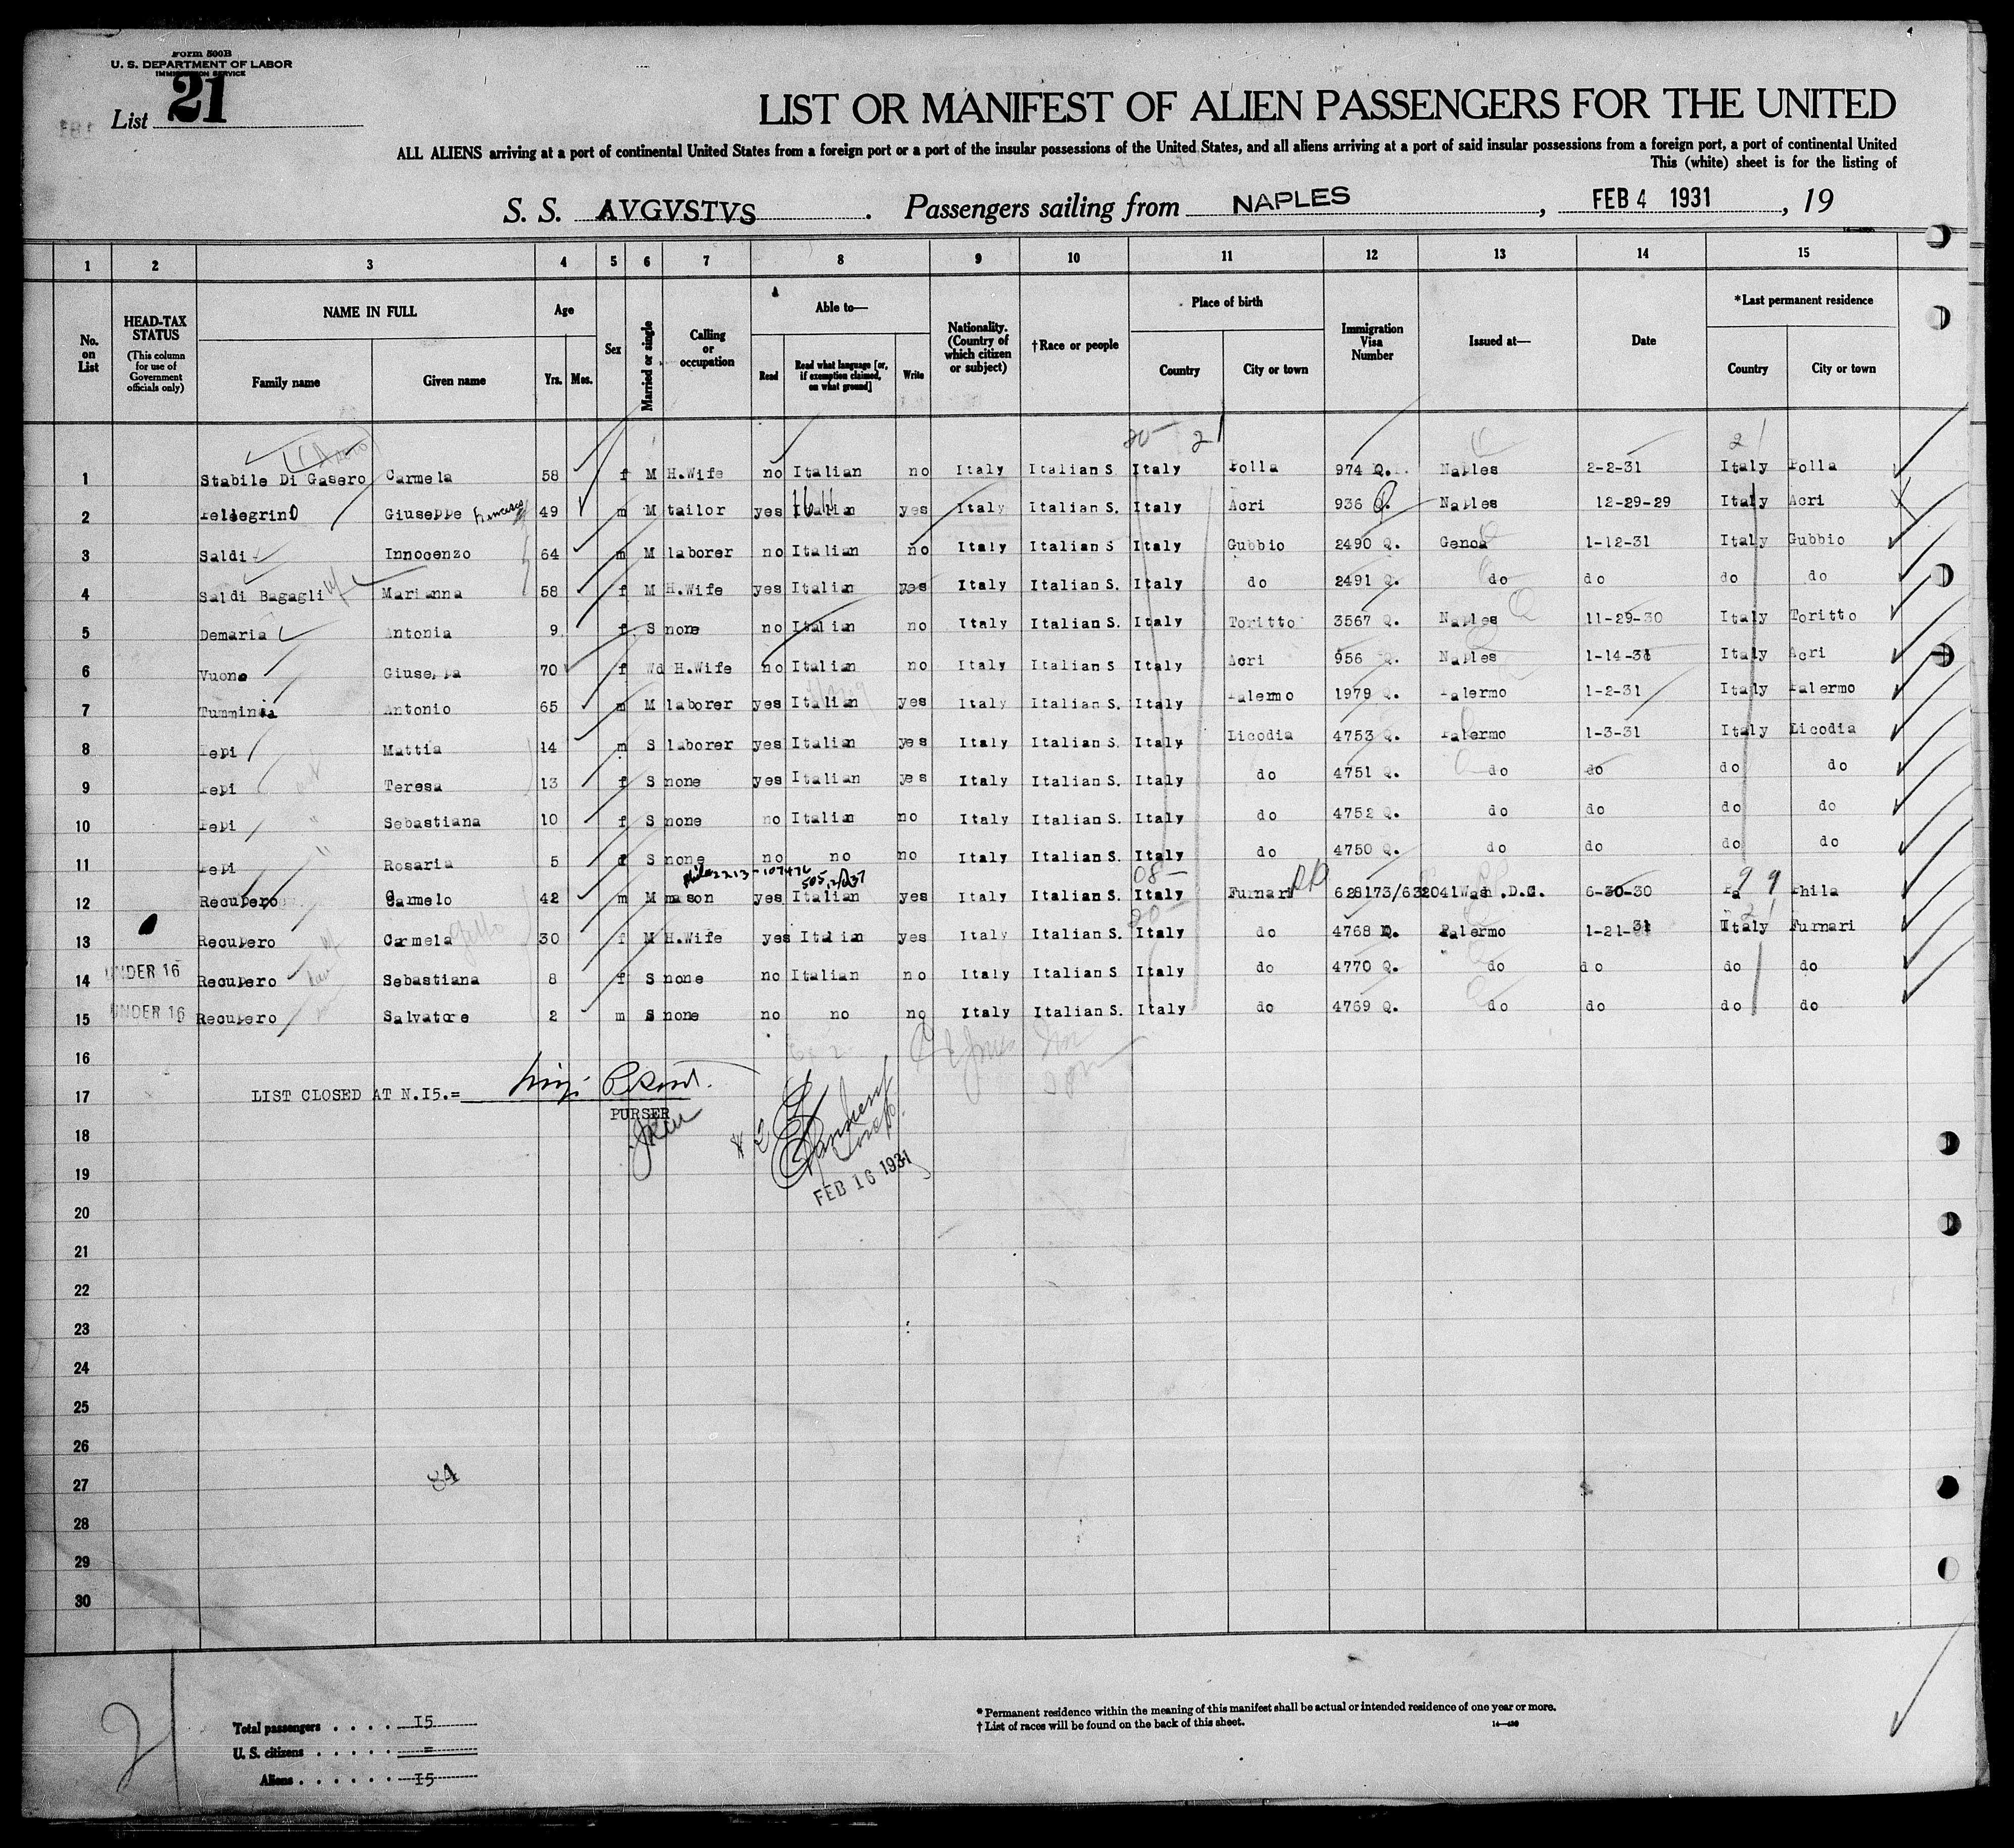 Form 500B
U. S. DEPARTMENT OF LABOR
IMMIGRATION SERVICE
List 21
LIST OR MANIFEST OF ALIEN PASSENGERS FOR THE UNITED
ALL ALIENS arriving at a port of continental United States from a foreign port or a port of the insular possessions of the United States, and all aliens arriving at a port of said insular possessions from a foreign port, a port of continental United
This (white) sheet is for the listing of
S. S. AVGVSTVS . Passengers sailing from NAPLES , FEB 4 1931 , 19
1 2 3 4 5 6 7 8 9 10 11 12 13 14 15
No. on List
HEAD-TAX STATUS (This column for use of Government officials only)
NAME IN FULL Family name Given name
Age Yrs. Mos.
Sex
Married or single
Calling or occupation
Able to— Read Read what language [or, if exemption claimed, on what ground] Write
Nationality. (Country of which citizen or subject)
†Race or people
Place of birth Country City or town
Immigration Visa Number
Issued at—
Date
*Last permanent residence Country City or town
20 21 21
1 Stabile Di Gasero Carmela 58 f M H.Wife no Italian no Italy Italian S. Italy Polla 974 Q. Naples 2-2-31 Italy Polla
2 Pellegrino Giuseppe Francesco 49 m M tailor yes Italian yes Italy Italian S. Italy Acri 936 Q. Naples 12-29-29 Italy Acri
3 Saldi Innocenzo 64 m M laborer no Italian no Italy Italian S Italy Gubbio 2490 Q. Genoa 1-12-31 Italy Gubbio
4 Saldi Bagagli Marianna 58 f M H.Wife yes Italian yes Italy Italian S. Italy do 2491 Q. do do do do
5 Demaria Antonia 9 f S none no Italian no Italy Italian S. Italy Toritto 3567 Q. Naples 11-29-30 Italy Toritto
6 Vuono Giuseppa 70 f Wd H.Wife no Italian no Italy Italian S Italy Acri 956 Q. Naples 1-14-31 Italy Acri
7 Tumminia Antonio 65 m M laborer yes Italian yes Italy Italian S. Italy Palermo 1979 Q. Palermo 1-2-31 Italy Palermo
8 Pepi Mattia 14 m S laborer yes Italian yes Italy Italian S. Italy Licodia 4753 Q. Palermo 1-3-31 Italy Licodia
9 Pepi Teresa 13 f S none yes Italian yes Italy Italian S. Italy do 4751 Q. do do do do
10 Pepi Sebastiana 10 f S none no Italian no Italy Italian S. Italy do 4752 Q. do do do do
11 Pepi Rosaria 5 f S none no no no Italy Italian S. Italy do 4750 Q. do do do do
08 99
12 Recupero Carmelo 42 m M mason yes Italian yes Italy Italian S. Italy Furnari 626173/632041 Wash.D.C. 6-30-30 Pa Phila
13 Recupero Carmela 30 f M H.Wife yes Italian yes Italy Italian S. Italy do 4768 Q. Palermo 1-21-31 Italy Furnari
14 UNDER 16 Recupero Sebastiana 8 f S none no Italian no Italy Italian S Italy do 4770 Q. do do do do
15 UNDER 16 Recupero Salvatore 2 m S none no no no Italy Italian S. Italy do 4769 Q. do do do do
16
17 LIST CLOSED AT N.I5.=
PURSER
18
19 FEB 16 1931
20
21
22
23
24
25
26
27 84
28
29
30
21
Total passengers . . . . I5
U. S. citizens . . . . . =
Aliens . . . . . . I5
* Permanent residence within the meaning of this manifest shall be actual or intended residence of one year or more.
† List of races will be found on the back of this sheet. 14—430